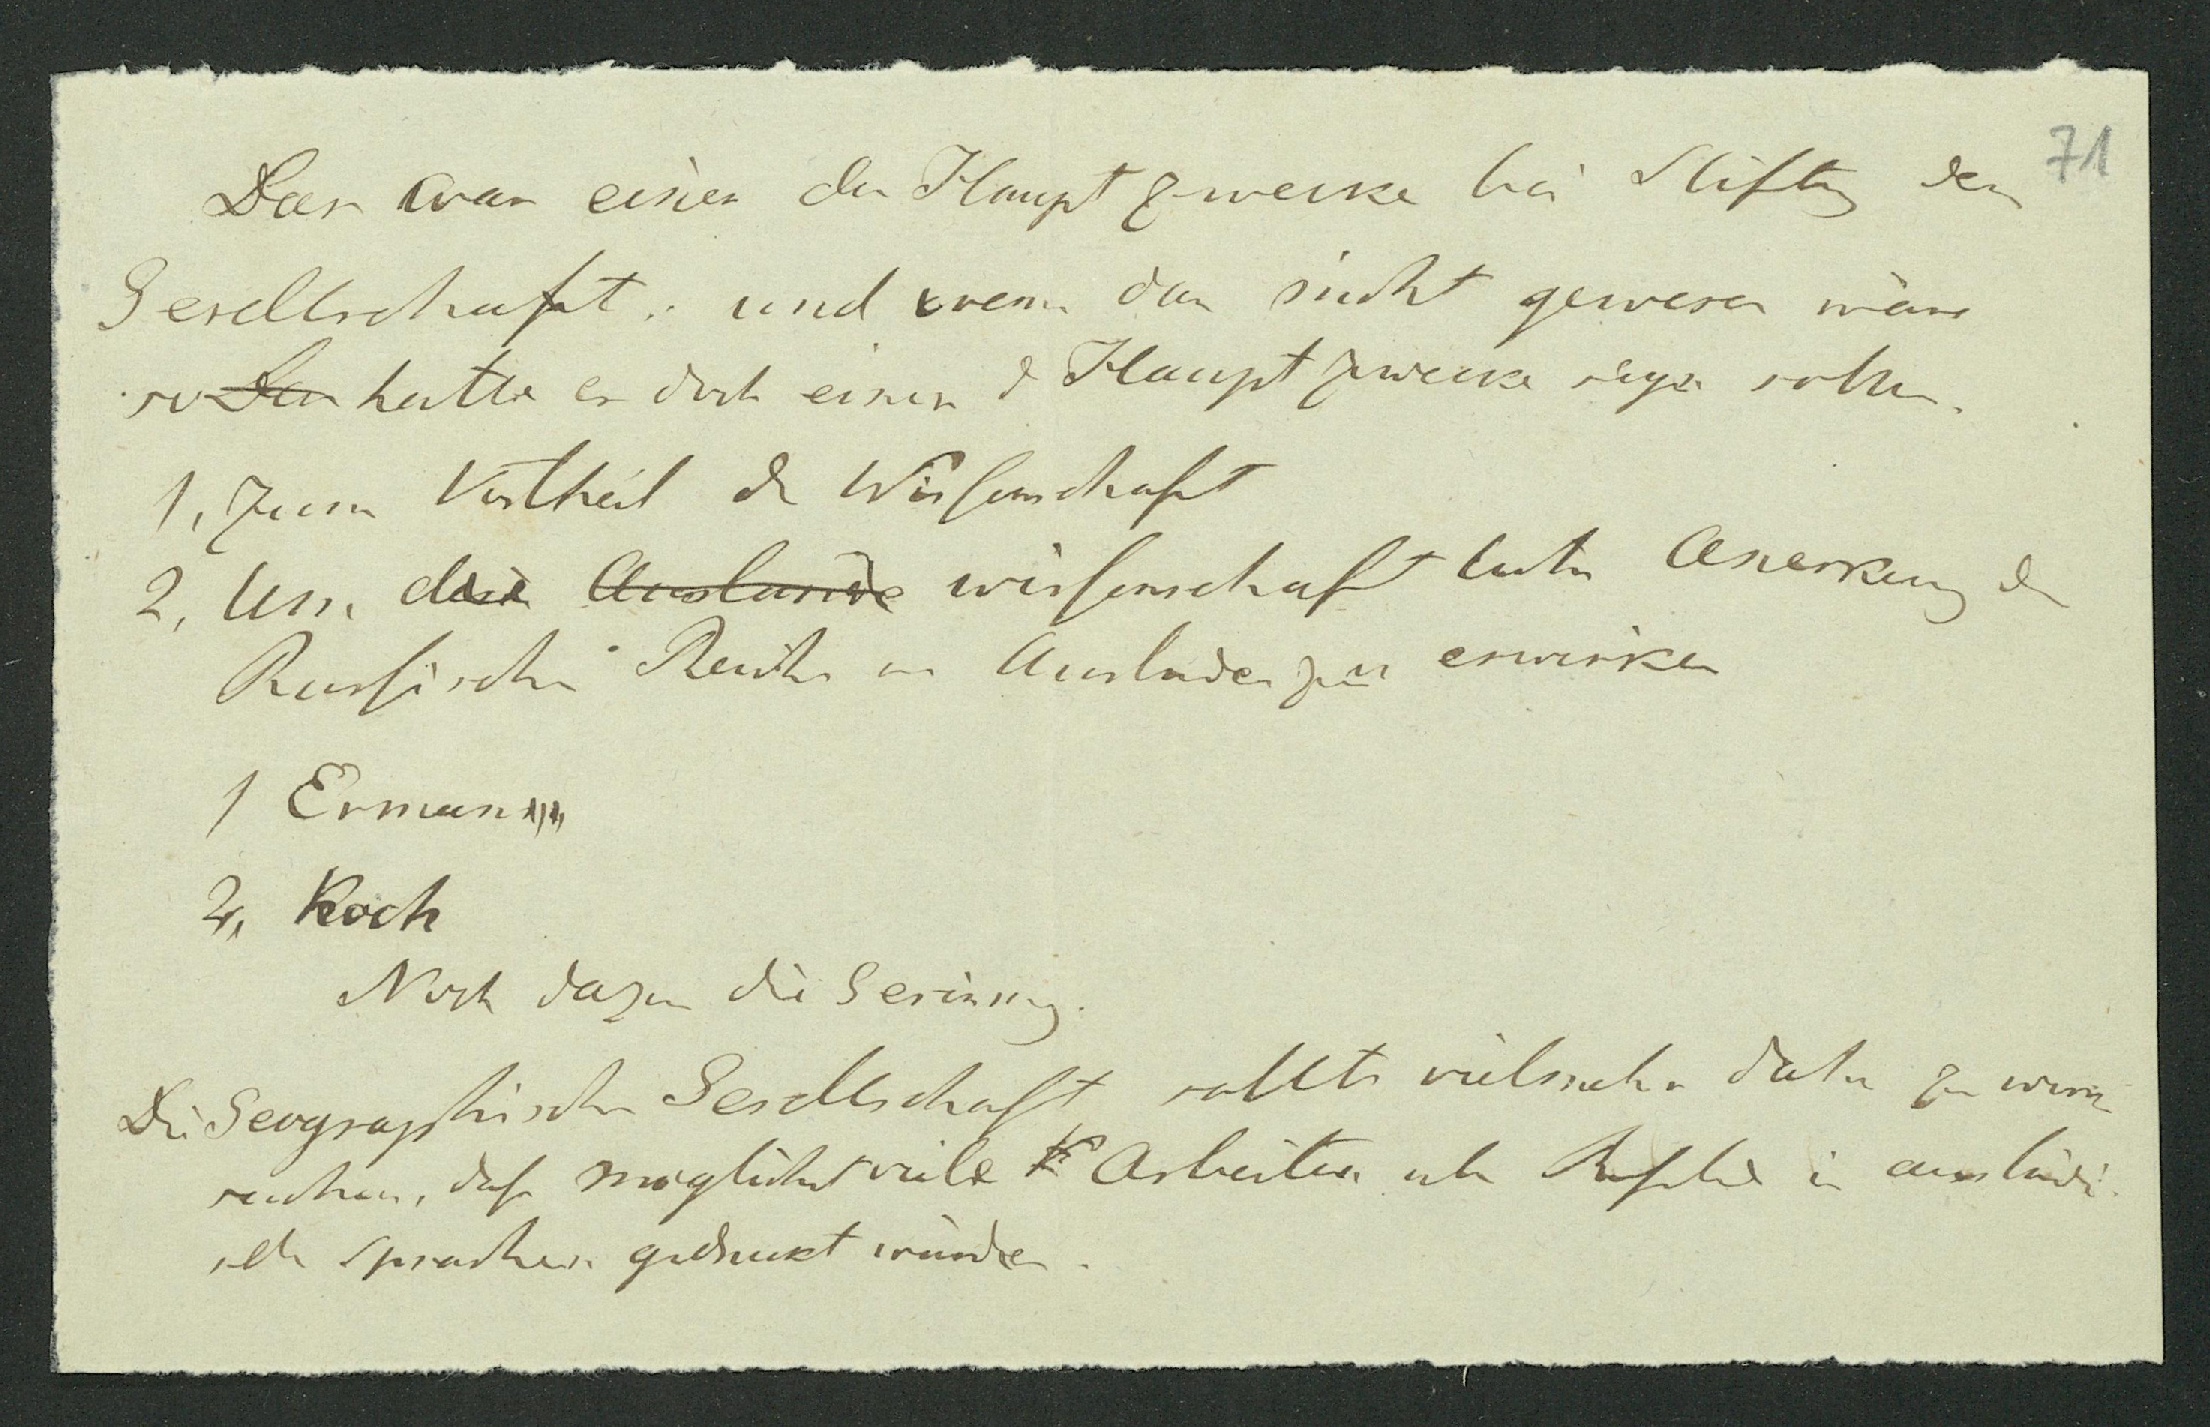 71
Das war einer der Hauptzwecke bei Stiftung der
Gesellschaft; und wenn das nicht gewesen wäre
so Das hätte es doch einer d Hauptzwecke seyn sollen.
1, Zum Vortheil der Wissenschaft
2, Um die Auslände wissenschaftliche Anerkenung des
Russischen Reichs im Auslande zu erwirken
1 Erman
2, Koch
Noch dazu die Gesinnung.
Die Geographische Gesellschaft sollte vielmehr dahin zu wirken
suchen, daß möglichst viele Arbeiten über Rußland in ausländi-
schen Sprachen gedruckt würden.